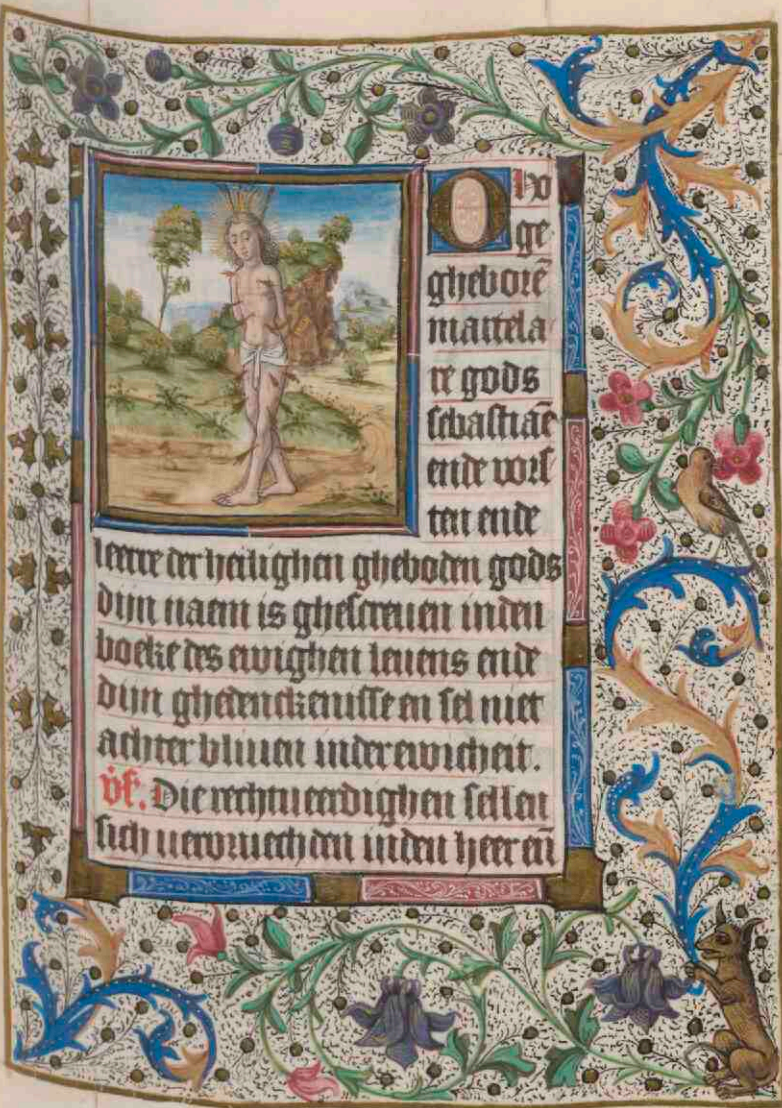 O ho
ge
gheborē
martela
re gods
sebastiaē
ende vors
ten ende
leerre der heilighen gheboden gods
dijn naem is ghescreuen inden
boeke des ewighen leuens ende
dijn ghedenckenisse en sel niet
achter bliuen inder ewicheit.
Die rechtueerdighen sellen
sich veruruechden inden heer eñ